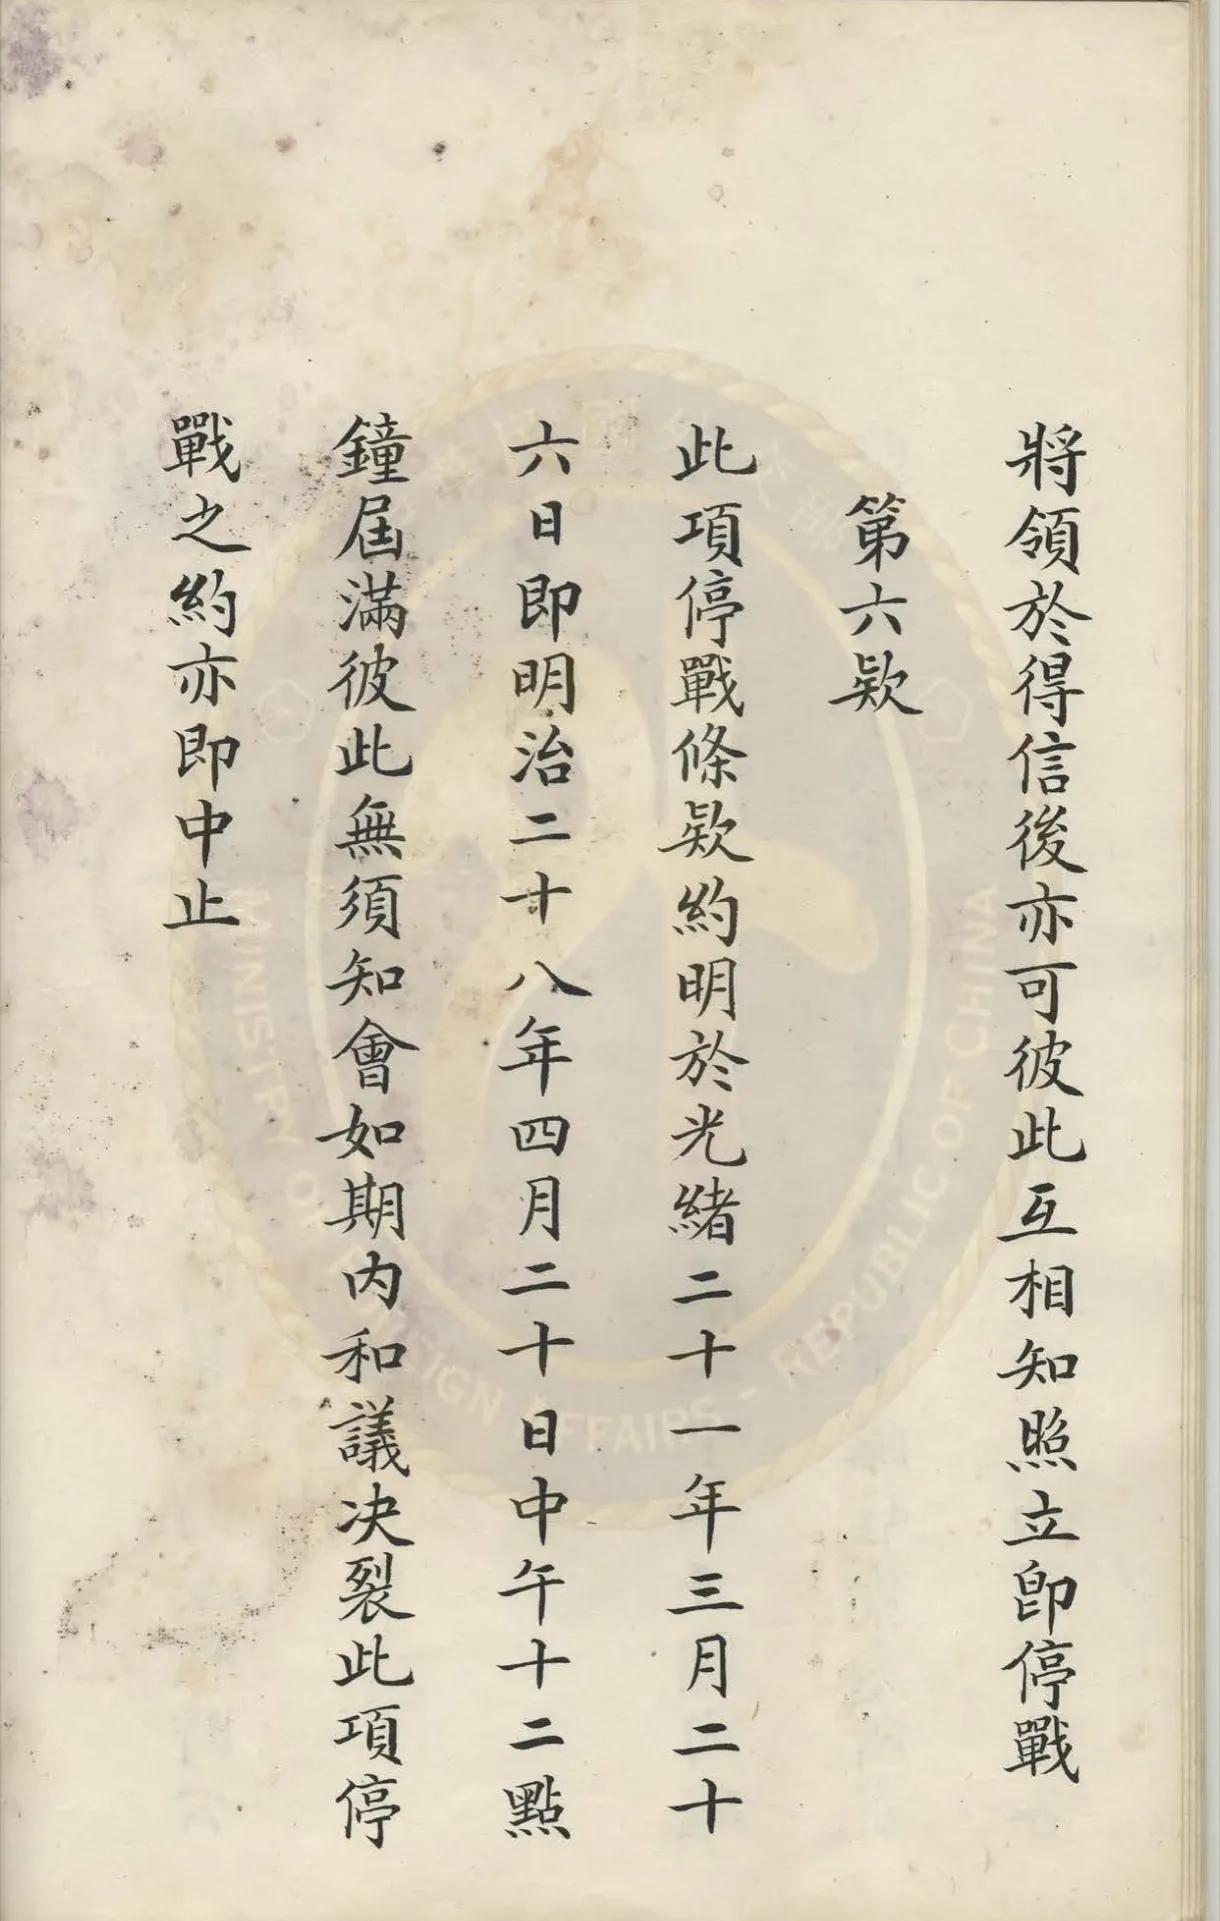 將領於得信後亦可彼此互相知照立卽停戰
第六欵
此項停戰條欵約明於光緒二十一年三月二十
六日即明治二十八年四月二十日中午十二點
鐘屆滿彼此無須知會如期內和議决裂此項停
戰之約亦即中止
MINISTRY OF FOREIGN AFFAIRS - REPUBLIC OF CHINA